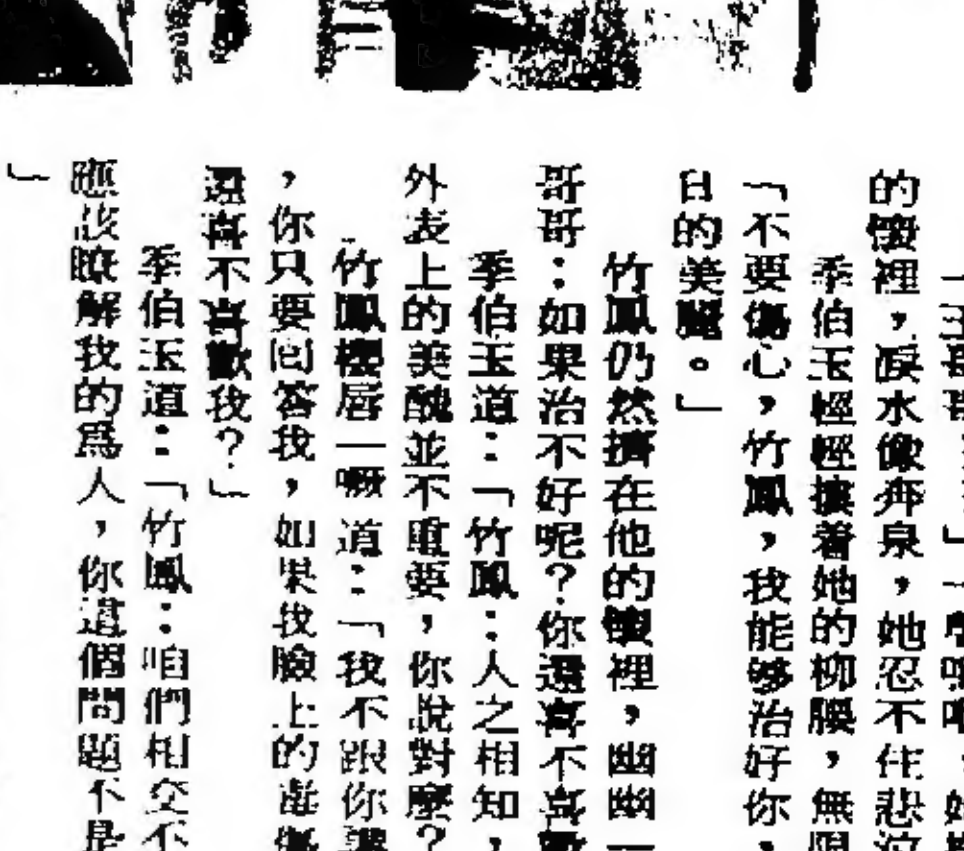 玉哥哥
的懷裡，淚水像奔泉，她忍不住悲泣
季伯玉輕輕摟着她的柳腰，無限
「不要傷心，竹鳳，我能够治好你，
日的美麗。」
竹鳳仍然擠在他的懷裡，幽幽一
哥哥：如果治不好呢？你還喜不喜歡
季伯玉道：「竹鳳：人之相知，
外表上的美醜並不重要，你說對麼？
竹鳳櫻唇一噘道：「我不跟你講
，你只要回答我，如果我臉上的毒傷
還喜不喜歡我？」
季伯玉道：「竹鳳：咱們相交不
應該瞭解我的爲人，你這個問題不是
」